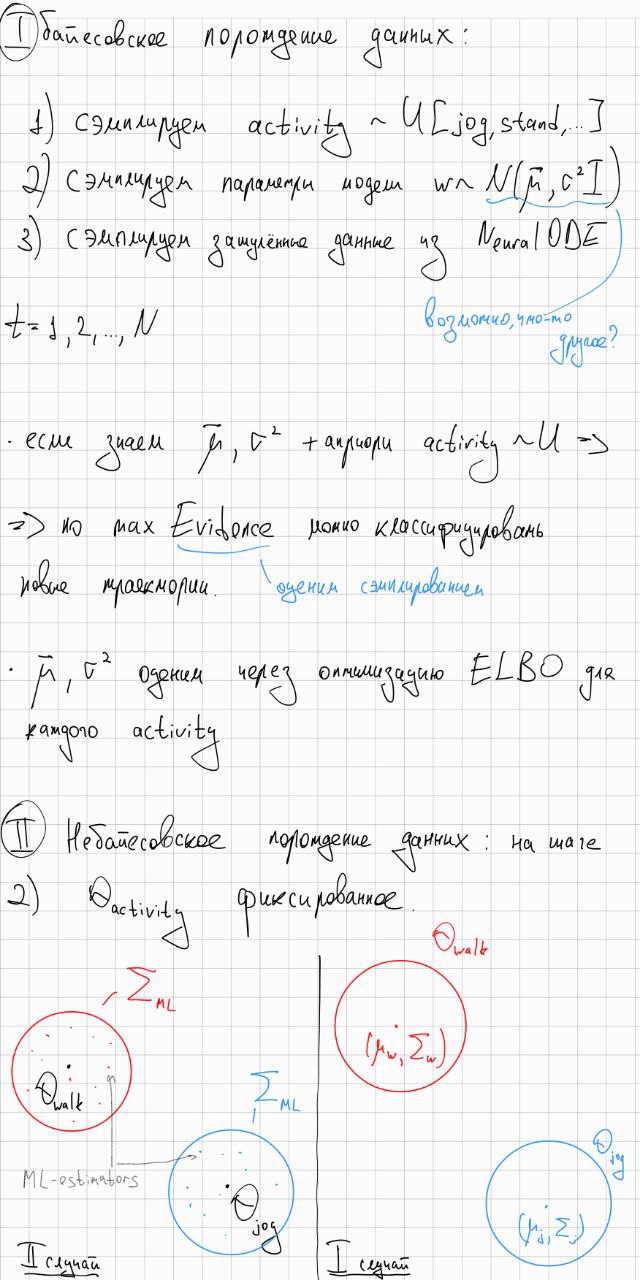 I байесовское порождение данных:
1) сэмплируем activity ~ U[jog, stand, ...]
2) сэмплируем параметры модели w ~ N(μ̄, σ²I)
3) сэмплируем зашумлённые данные из Neural ODE
возможно, что-то
другое?
t = 1, 2, ..., N
· если знаем μ̄, σ² + априори activity ~ U =>
=> по max Evidence можно классифицировать
новые траектории.
оценим сэмплированием
· μ̄, σ² оценим через оптимизацию ELBO для
каждого activity
II Небайесовское порождение данных: на шаге
2) Θactivity фиксированное.
Θwalk
Σ ML
(μw, Σw)
Θwalk
Σ ML
Θjog
ML-estimators
Θjog
(μj, Σj)
II случай
I случай